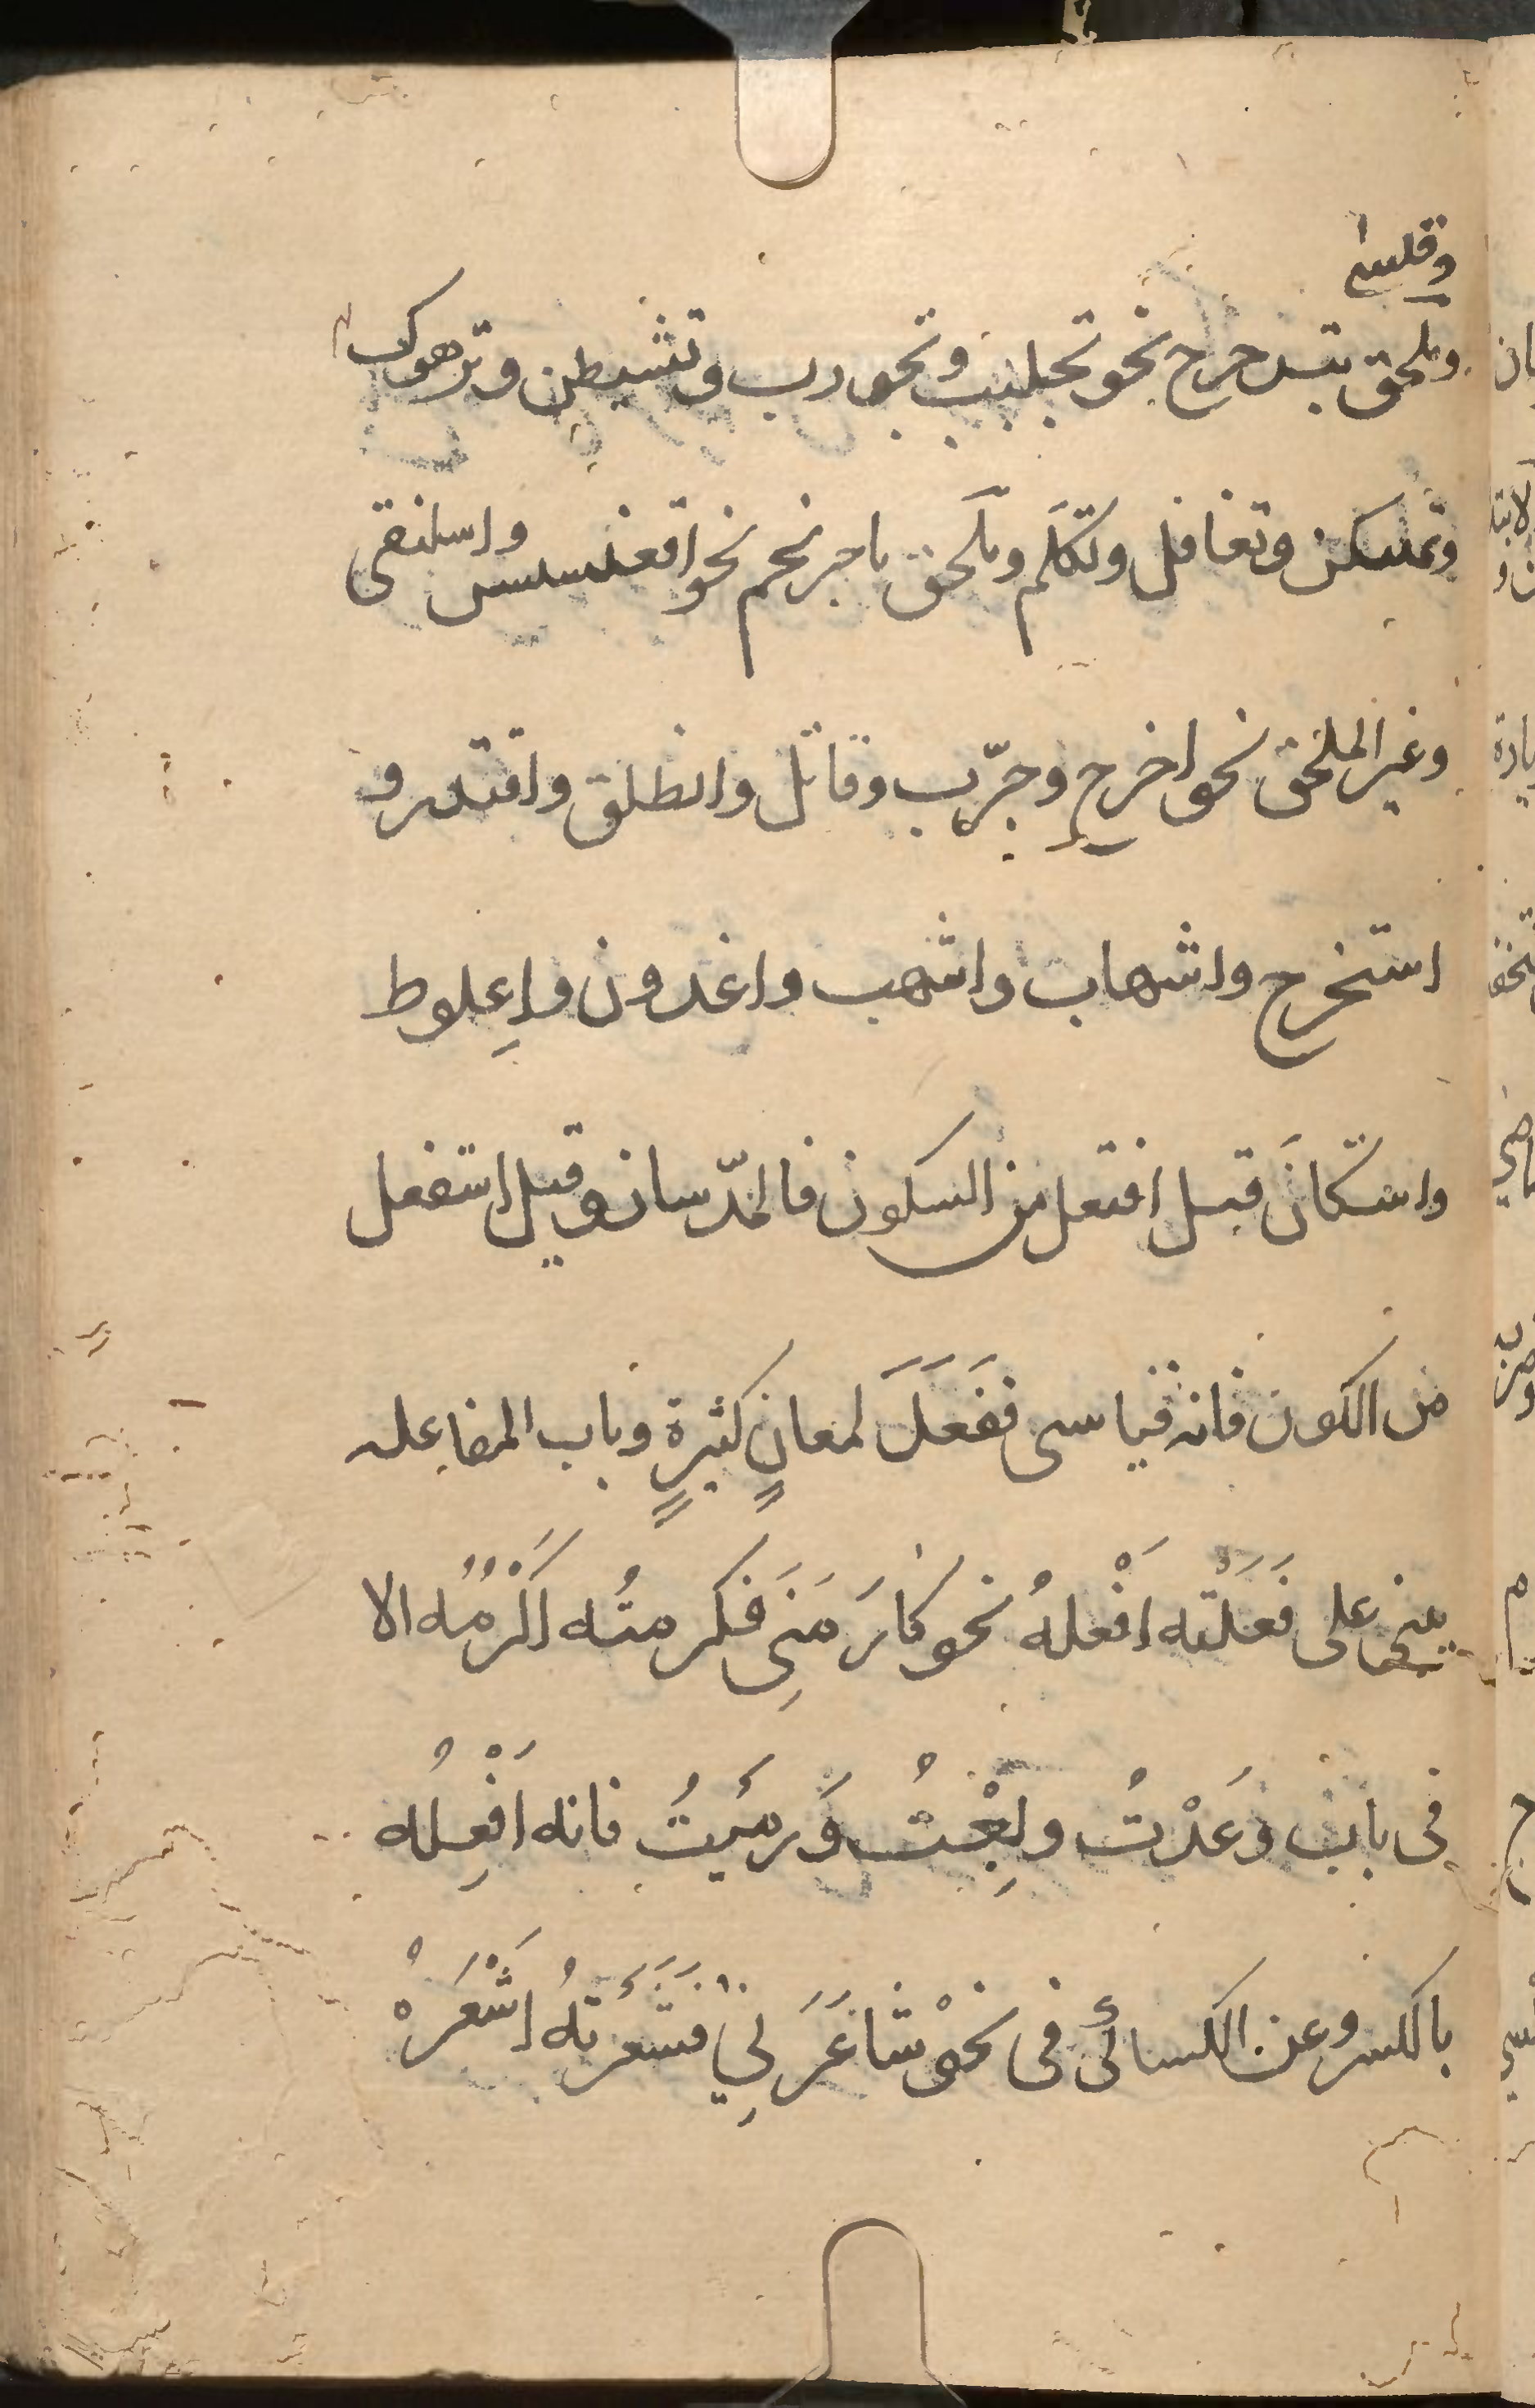 وقلسى
وملحق بتدحرج نحو تجلبب وتجورب وتشيطن وترهوك
وتمسكن وتغافل وتكلّم وملحق باحرنجم نحو اقعنسس واسلنقى
وغير الملحق نحو اخرج وجرّب وقاتل وانطلق واقتدر و
استخرج واشهاب واشهب واغدودن وَاِعلوط
واستكانَ قيل افتعل من السكون فالمدّ شاذ وقيل استفعل
من الكون فانه قياسى ففَعَلَ لمعانٍ كثيرةٍ وباب المفاعله
يبنى على فَعَلْته اَفْعلهُ نحو كارَمَنِى فكرمتُه اَكْرُمُه الا
فى باب وَعَدْتُ وبِعْتُ وَرمَيتُ فانه اَفْعِلُه
بالكسر وعن الكسائى فى نحْو شاعَرَنِي فشَعَرتهُ اَشْعَرهُ